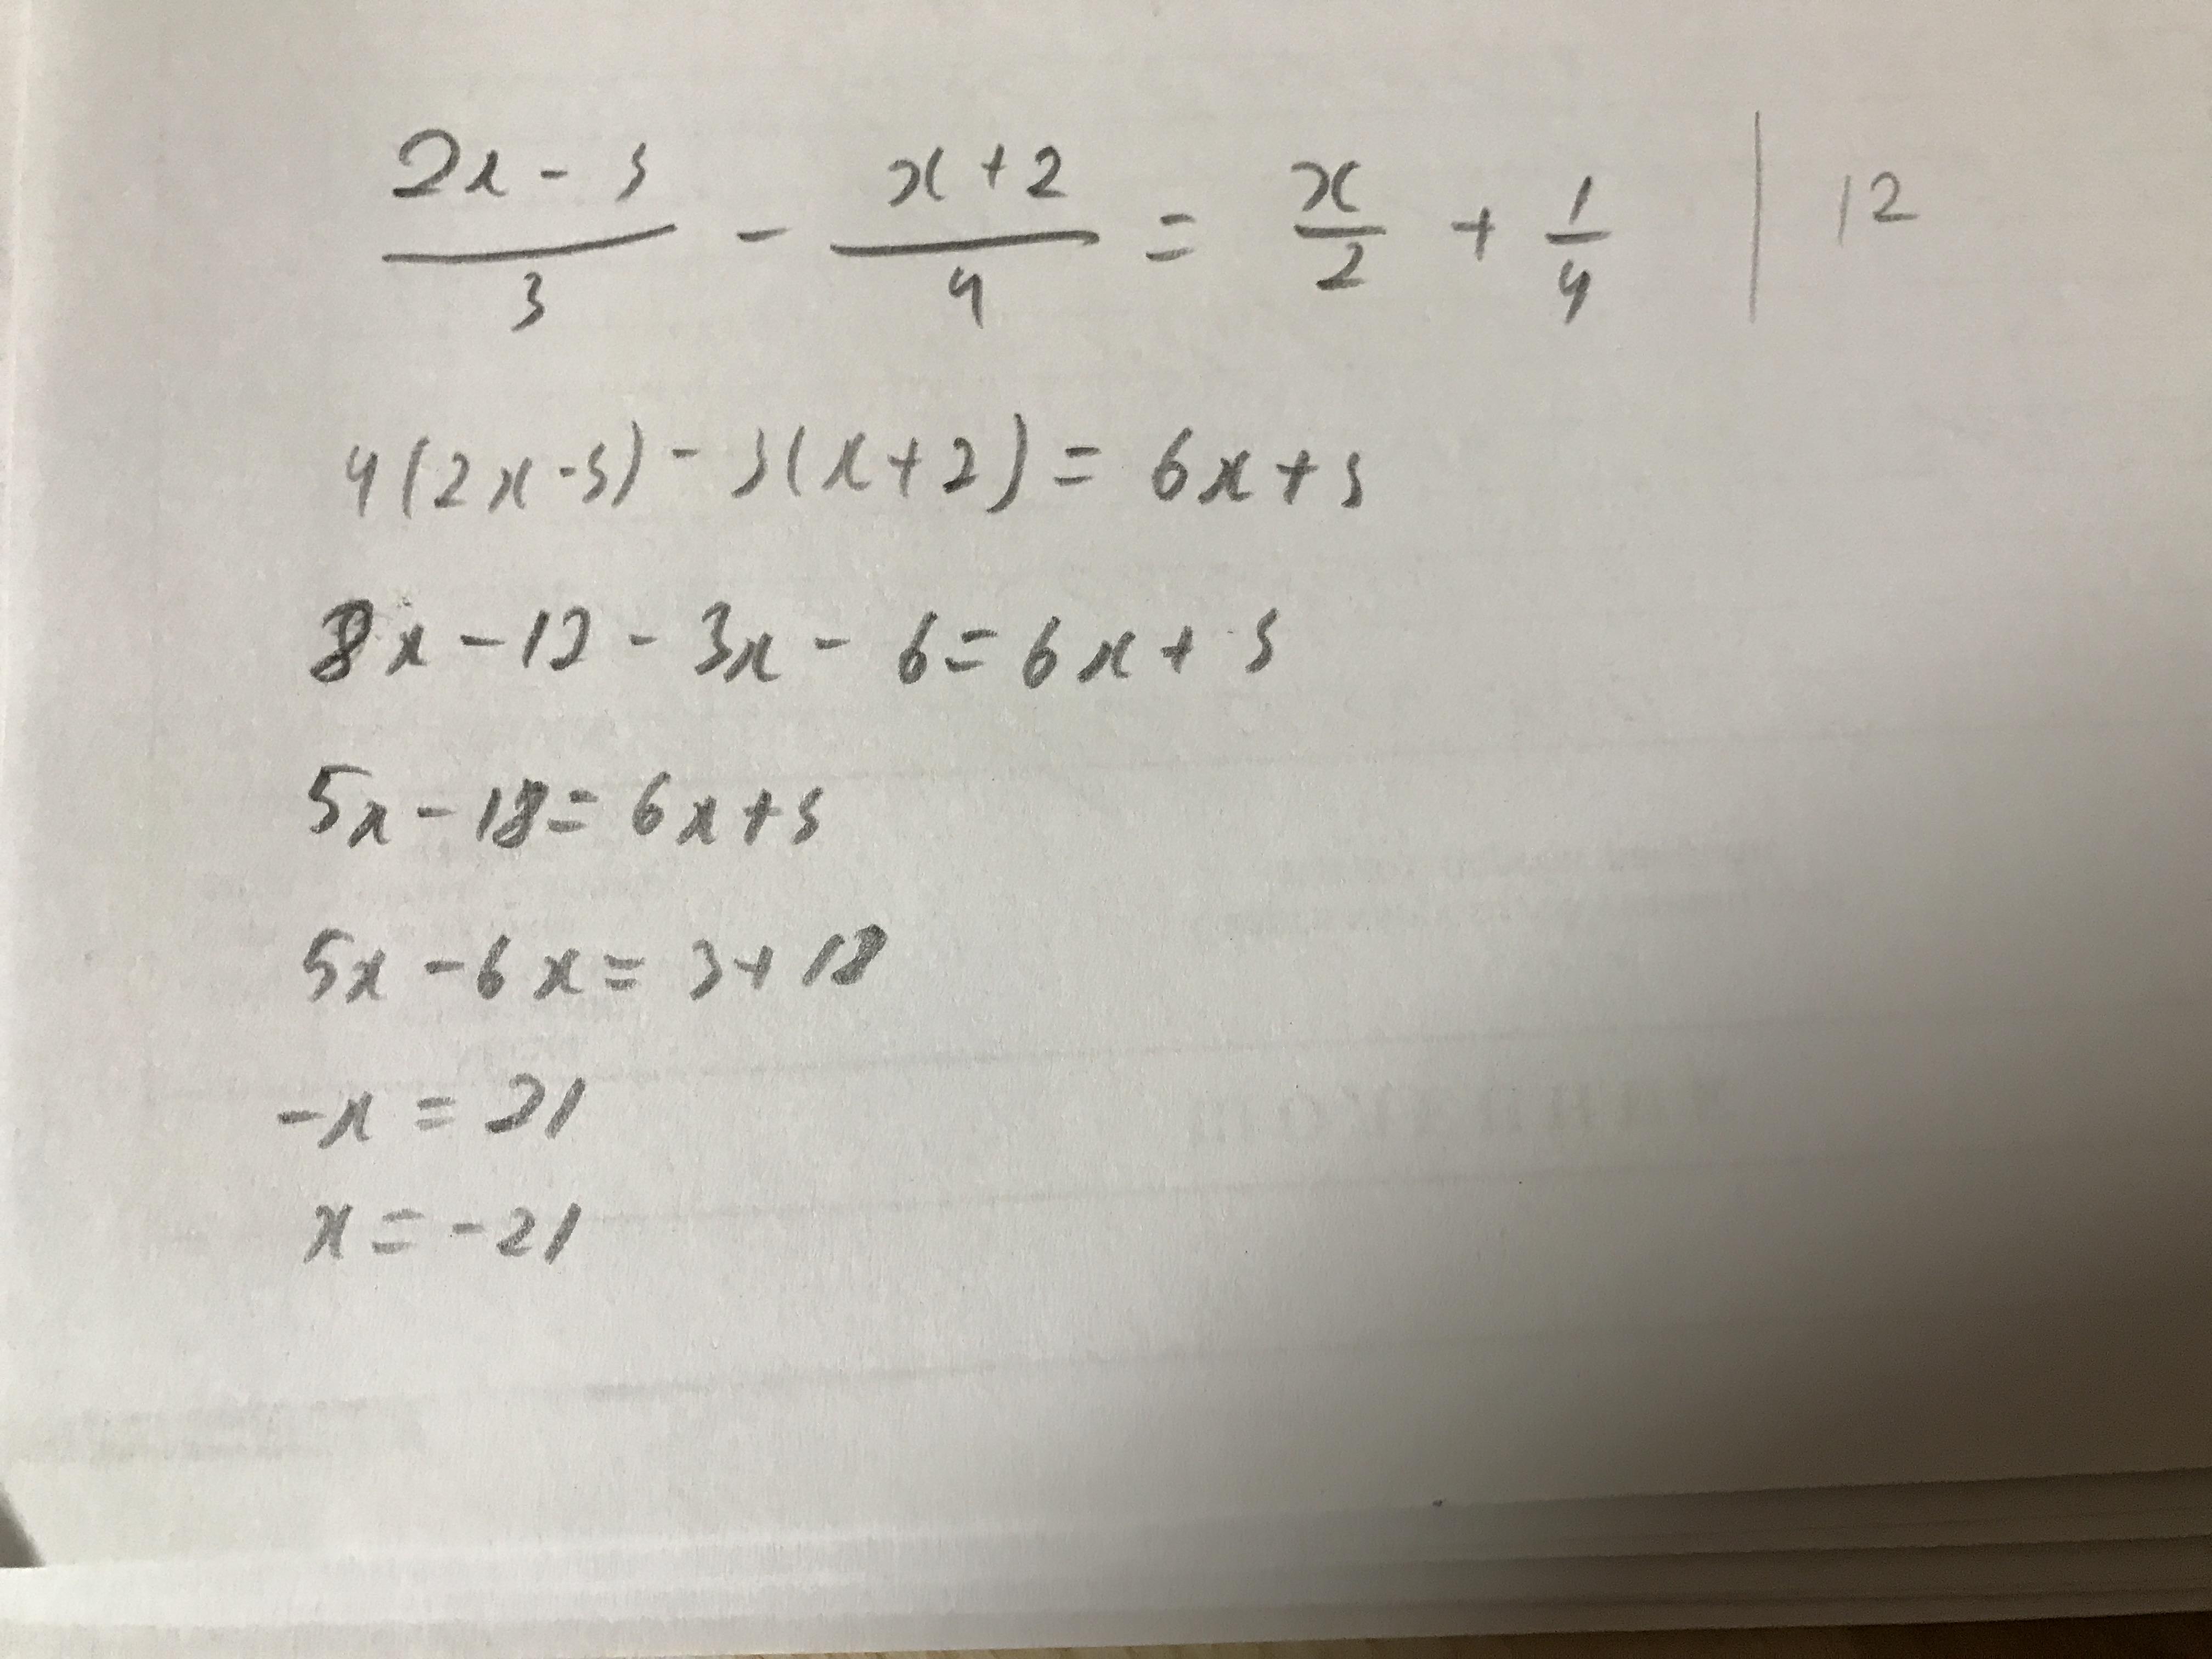 (2x-3)/3 - (x+2)/4 = x/2 + 1/4 | 12
4(2x-3)-3(x+2)=6x+3
8x-12-3x-6=6x+3
5x-18=6x+3
5x-6x=3+18
-x=21
x=-21